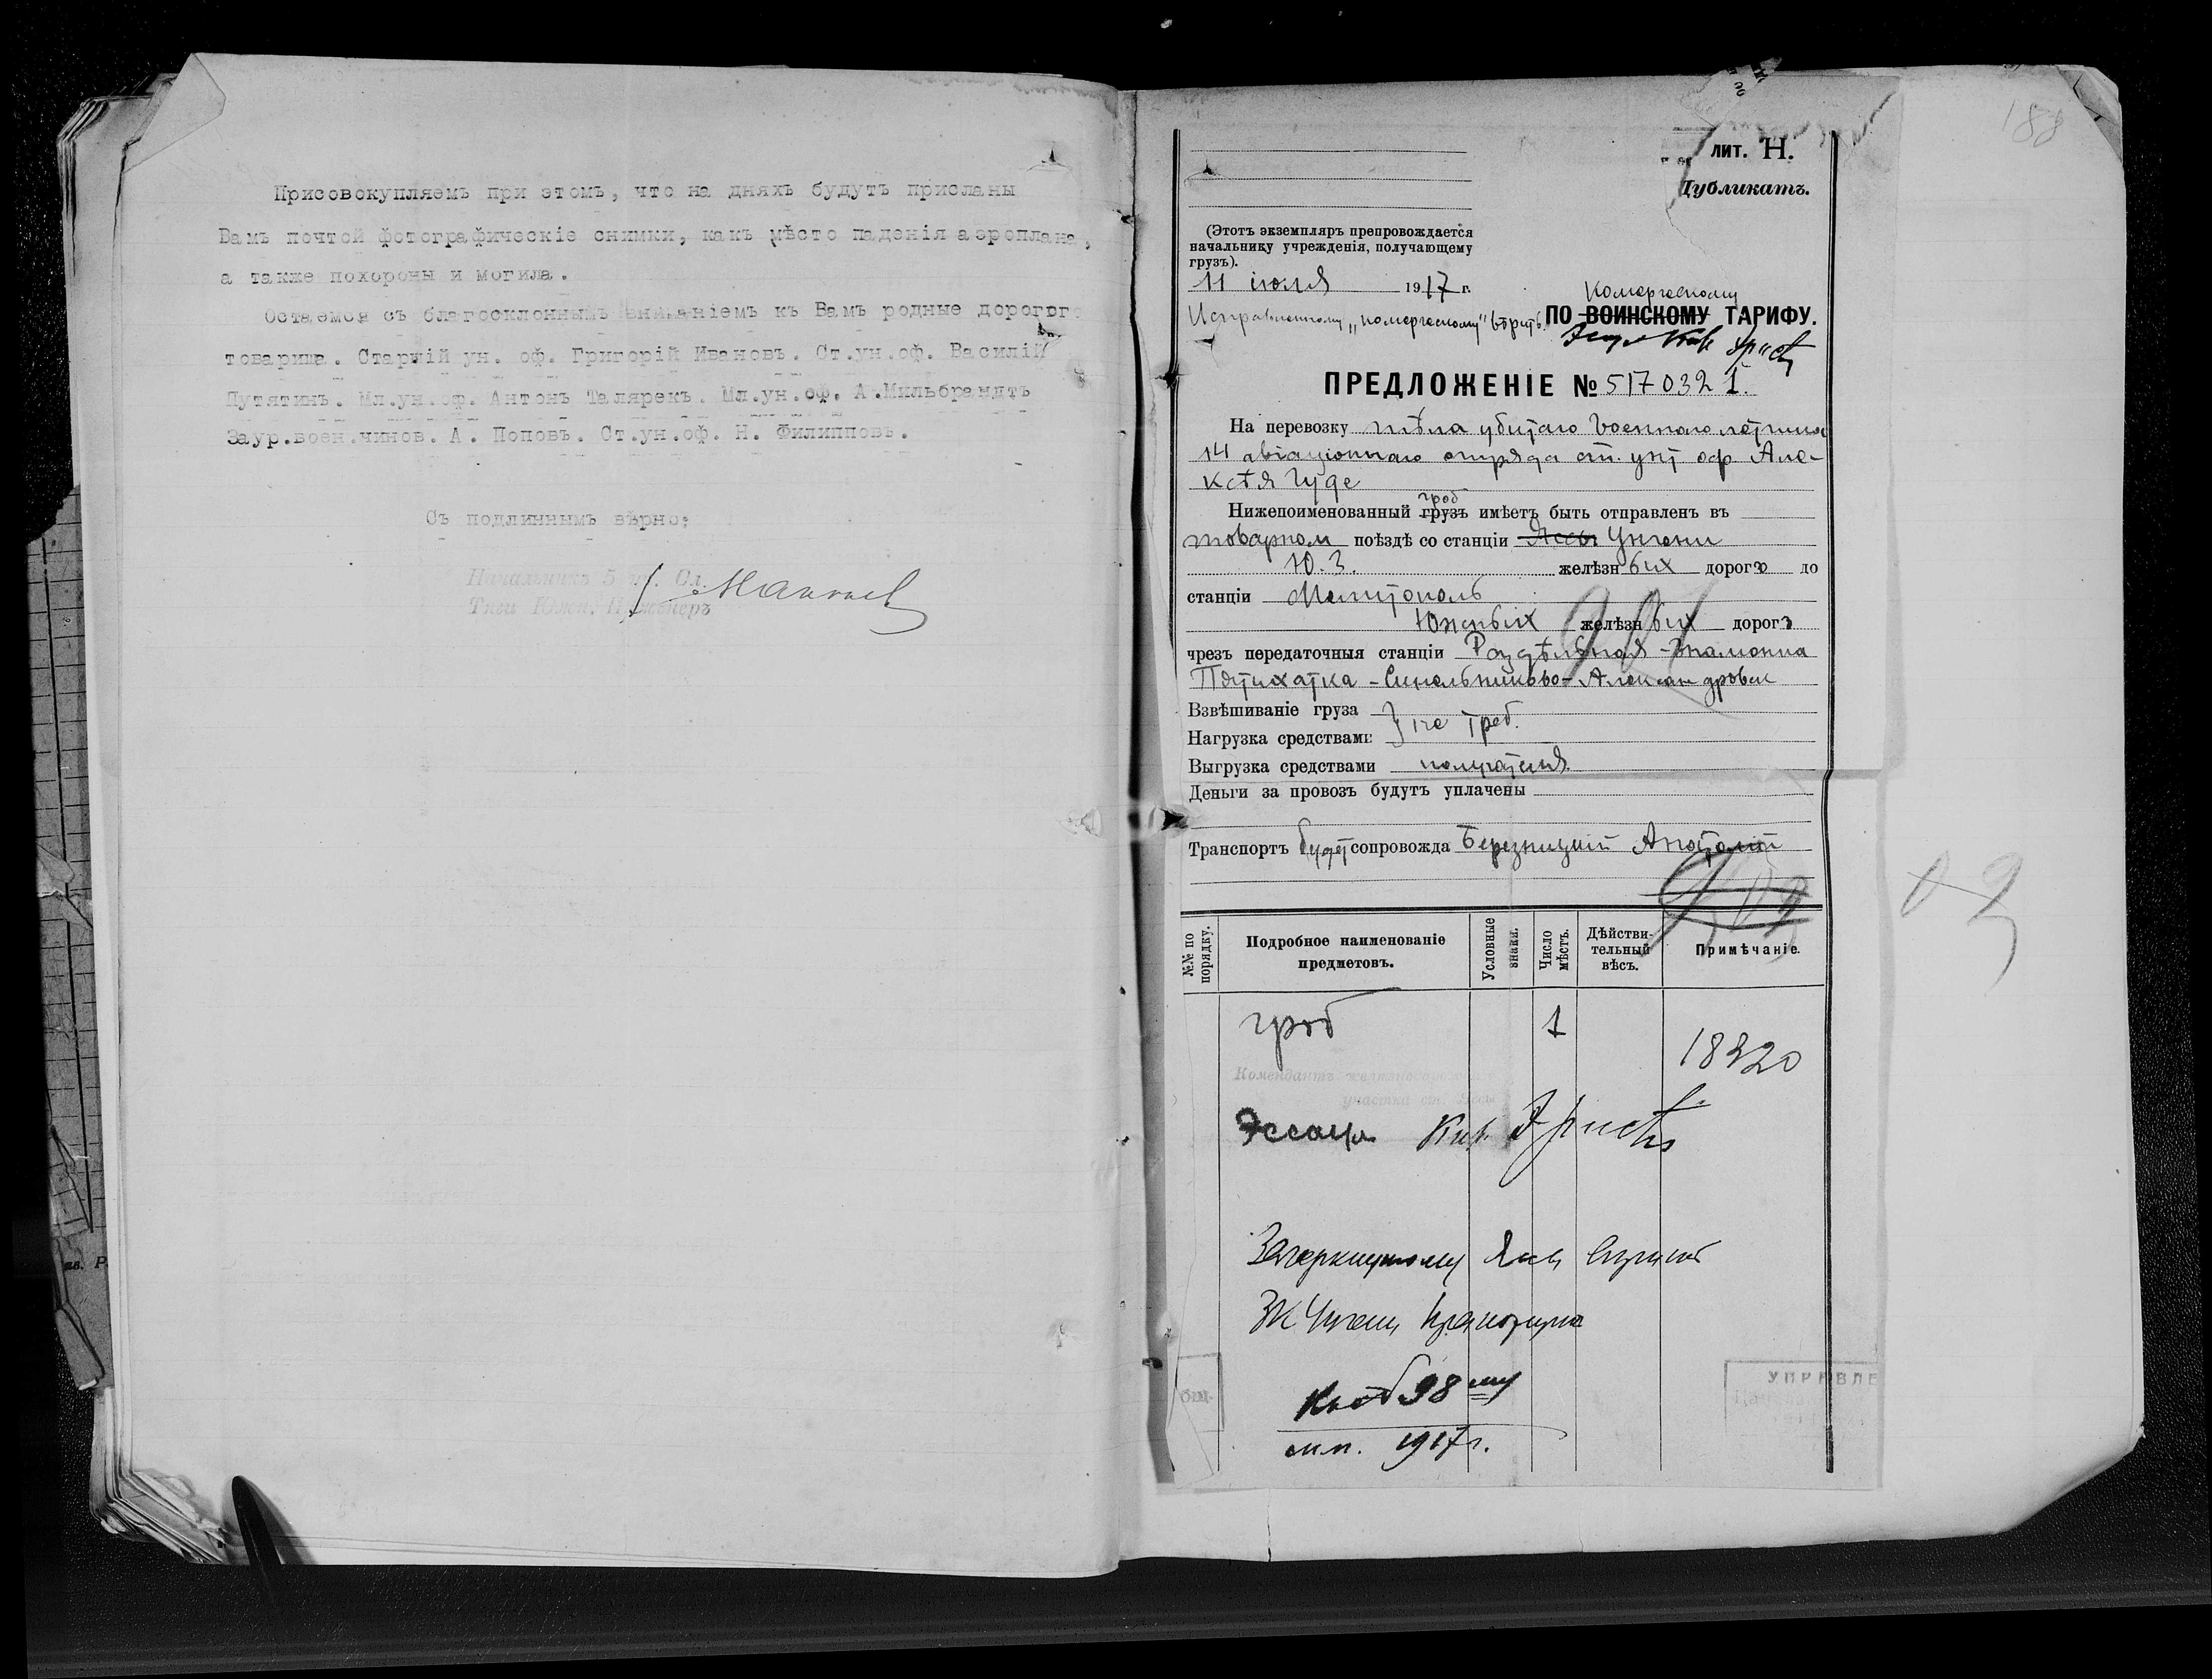 Присовокупляемъ при этомъ, что на дняхъ будутъ присланы
Вамъ почтой фотографическіе снимки, какъ мѣсто паденія аэроплана,
а также похороны и могила.
Остаемся съ благосклоннымъ вниманіемъ къ Вамъ родные дорогого
товарища. Старшій ун. оф. Григорій Ивановъ. Ст.ун.оф. Василій
Путятинъ. Мл.ун.оф. Антонъ Талярекъ. Мл.ун.оф. А.Мильбрандтъ
Заур.воен.чинов. А. Поповъ. Ст.ун.оф. Н. Филипповъ.
Съ подлиннымъ вѣрно:
Начальникъ 5
Тяги Южн. Инженеръ
188
ЛИТ. Н.
Дубликатъ.
(Этотъ экземпляръ препровождается
начальнику учрежденія, получающему
грузъ).
11 іюля 1917 г.
Комерческому
"комерческому" вѣрить. ПО ВОИНСКОМУ ТАРИФУ.
ПРЕДЛОЖЕНІЕ № 517032 1.
На перевозку тѣла убитаго военнаго летчика
14 авіаціоннаго отряда ст. унт оф Але-
ксѣя Гуде
гроб
Нижепоименованный грузъ имѣетъ быть отправленъ въ
товарном поѣздѣ со станціи Яссы Унгени
Ю.З. желѣзн ых дорогъ до
станціи Мелитополь
Южных желѣзн ых дорогъ
чрезъ передаточныя станціи Раздѣльная - Знаменка
Пятихатка - Синельниково - Александровск
Взвѣшиваніе груза } не треб.
Нагрузка средствами
Выгрузка средствами получателя.
Деньги за провозъ будутъ уплачены
Транспортъ будет сопровожда Березницкій Анатолій
№№ по порядку.
Подробное наименованіе предметовъ.
Условные знаки.
Число мѣстъ.
Дѣйстви-тельный вѣсъ.
Примѣчаніе.
гроб 1
18320
Комендантъ желѣзнодорожн.
участка ст. Яссы
Эссаул Кн.
Зачеркнутому Яссы
1917 г.
УПРАВЛЕ